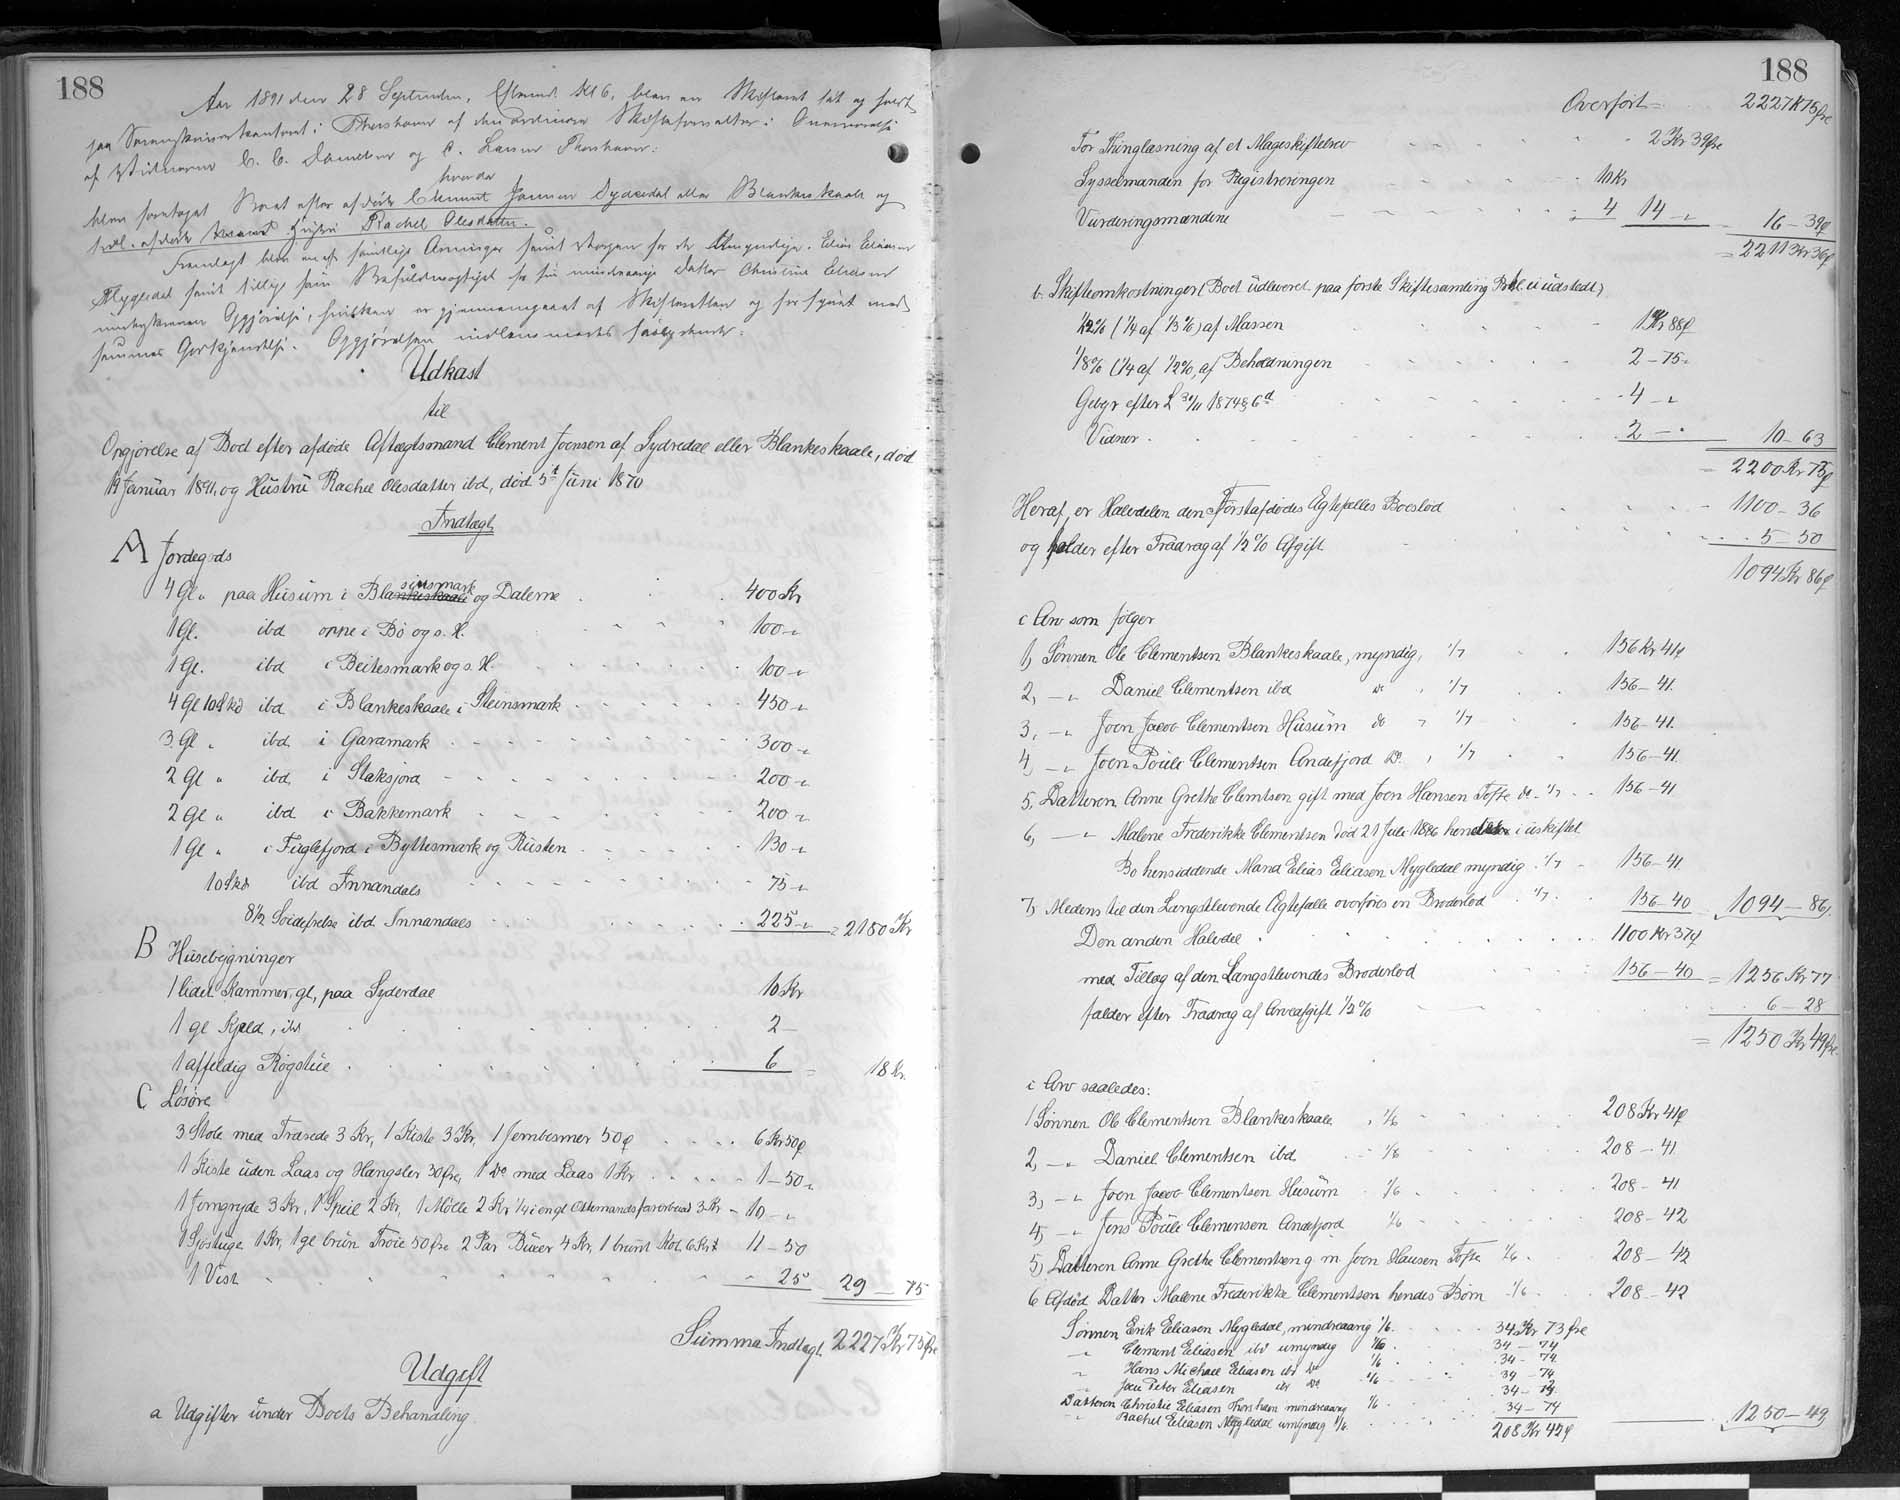 188
Aar 1891 den 28 September, Eftermd. Kl 6, blev en Skifteret sat og holdt
paa Sorenskriverkontoret i Thorshavn af den ordinære Skifteforvalter i Overværelse
af Vidnerne C. C. Danielsen og C. Larsen Thorshavn:
hvorda
blev foretaget Boet efter afdøde Clement Joensen Sydredal eller Blankeskaale og
tidl. afdøde Hustru Rachel Olesdatter.
Fremlagt blev en af samtlige Arvinger samt Værgen for de Umyndige. Elias Eliasen
Mygledal samt tillige som Befuldmægtiget for sin mindreaarige Datter Christine Eliasen
underskreven Opgjørelse, hvilken er gjennemgaaet af Skifteretten og forsynet med
sammes Godkjendelse. Opgjørelsen indlemmedes saalydende:
Udkast
til
Opgjørelse af Boet efter afdøde Aftægtsmand Clement Joensen af Sydredal eller Blankeskaale, død
14 Januar 1891, og Hustru Rachel Olesdatter ibd, død 5t Juni 1870
Indtægt
A Jordegods
4 Gl " paa Husum i Blankeskaale sinsmark og Dalerne 400 Kr
1 Gl. ibd oppe i Bø og s. H. 100 "
1 Gl. ibd i Beitesmark og s. H. 100 "
4 Gl 10 Skd ibd i Blankeskaale i Steinsmark 450 "
3 Gl " ibd i Garamark 300 "
2 Gl " ibd i Staksjord 200 "
2 Gl " ibd i Bakkemark 200 "
1 Gl " i Fuglefjord i Byttesmark og Rusten 130 "
10 Skd ibd Innandals 75 "
8 1/2 ibd Innandals 225 " = 2180 Kr
B Husebygninger
1 lidet Kammer, gl, paa Syderdal 10 Kr
1 gl Kjeld, ibd 2 —
1 affeldig Røgstue 6 = 18 Kr.
C Løsøre
3 Stole med Træsede 3 Kr, 1 Kiste 3 Kr, 1 Jernbesmer 50 ø 6 Kr 50 ø
1 Kiste uden Laas og Hængsler 50 Øre, 1 Do med Laas 1 Kr 1 — 50 "
1 Jerngryde 3 Kr, 1 Speil 2 Kr, 1 Mølle 2 Kr 1/4 i en gl Ottemandsfarerbaad 3 Kr — 10 — "
1 Sjøstuge 1 Kr, 1 gl brun Trøie 50 Øre 2 Par Buxer 4 Kr, 1 brunt 6 Kr 11 — 50
1 Vest 25 29 — 75
Summa Indtægt 2227 Kr 75 Øre
Udgift
a Udgifter under Boets Behandling.
188
Overført = 2227 K 75 Øre
For Thinglæsning af et Mageskiftebrev 2 Kr 39 Øre
Sysselmanden for Registreringen 10 Kr
Vurderingsmændene 4 14 — " = 16 — 39 ø
= 2211 Kr 36 ø
b. Skifteomkostninger (Boet udleveret paa første Skiftesamling udstedt)
1/12 % (1/4 af 1/3 %) af Massen 1 Kr 88 ø
1/8 % (1/4 af 1/2 %, af Beholdningen 2 — 75 "
Gebyr efter L 30/11 1874 § 6 d 4 — "
Vidner 2 — " 10 — 63
= 2200 Kr 73 ø
Heraf er Halvdelen den Førstafdødes Ægtefælles Boeslod 1100 — 36
og falder efter Fradrag af 1/2 % Afgift 5 — 50
1094 Kr 86 ø
i Arv som følger
1, Sønnen Ole Clementsen Blankeskaale, myndig, 1/7 156 Kr 41 ø
2, — " Daniel Clementsen ibd do , 1/7 156 — 41
3, — " Joen Jacob Clementsen Husum do " 1/7 156 — 41
4, — " Joen Poule Clementsen Andefjord do , 1/7 156 — 41
5, Datteren Anne Grethe Clemtsen gift med Joen Hansen Tofte do 1/7 156 — 41
6, — " Malene Frederikke Clementsen død 21 Juli 1886 hendes i uskiftet
Bo hensiddende Mand Elias Eliasen Mygledal myndig 1/7 156 — 41
7, Medens til den Længstlevende Ægtefælle overføres en Broderlod 1/7 156 — 40 1094 — 86
Den anden Halvdel 1100 Kr 37 ø
med Tillæg af den Længstlevendes Broderlod 156 — 40 = 1256 Kr 77
6 — 28
falder efter Fradrag af Arveafgift 1/2 %
= 1250 Kr 49 Øre
i Arv saaledes:
1 Sønnen Ole Clementsen Blankeskaale , 1/6 208 Kr 41 ø
2, — " Daniel Clementsen ibd 1/6 208 — 41
3, — " Joen Jacob Clementsen Husum 1/6 208 — 41
4, — " Jens Poule Clemensen Andefjord 1/6 208 — 42
5, Datteren Anne Grethe Clementsen g m Joen Hansen Tofte 1/6 208 — 42
6 Afdød Datter Malene Frederikke Clementsen hendes Børn 1/6 208 — 42
Sønnen Erik Eliasen Mygledal, mindreaarig 1/6 34 Kr 73 Øre
" Clement Eliasen ibd umyndig 1/6 34 — 74
" Hans Michael Eliasen ibd do 1/6 34 — 74
" Joen Peter Eliasen ibd do 1/6 34 — 74
Datteren Christie Eliasen Thorshavn mindreaarig 1/6 34 — 74
" Rachel Eliasen Mygledal umyndig 1/6 34 — 74
208 Kr 42 ø 1250 — 49